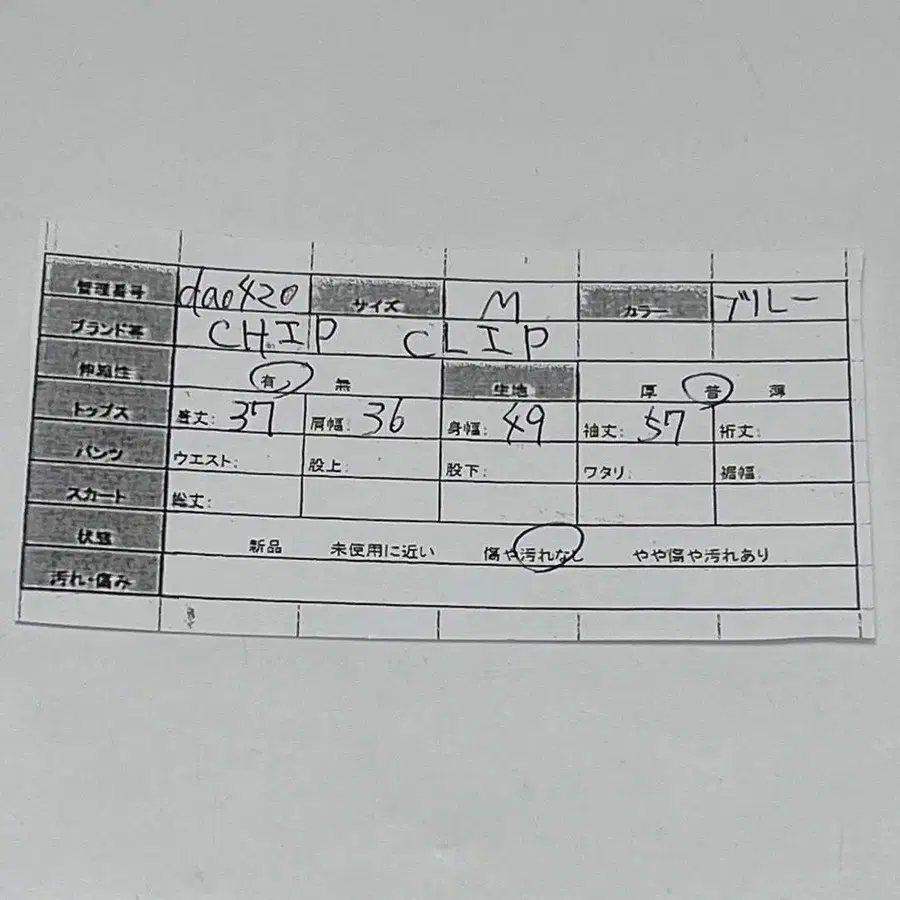 管理番号 dao420 サイズ M カラー ブルー
ブランド名 CHIP CLIP
伸縮性 有 無 生地 厚 普 薄
トップス 着丈: 37 肩幅: 36 身幅: 49 袖丈: 57 裄丈:
パンツ ウエスト: 股上: 股下: ワタリ: 裾幅:
スカート 総丈:
状態 新品 未使用に近い 傷や汚れなし やや傷や汚れあり
汚れ・傷み